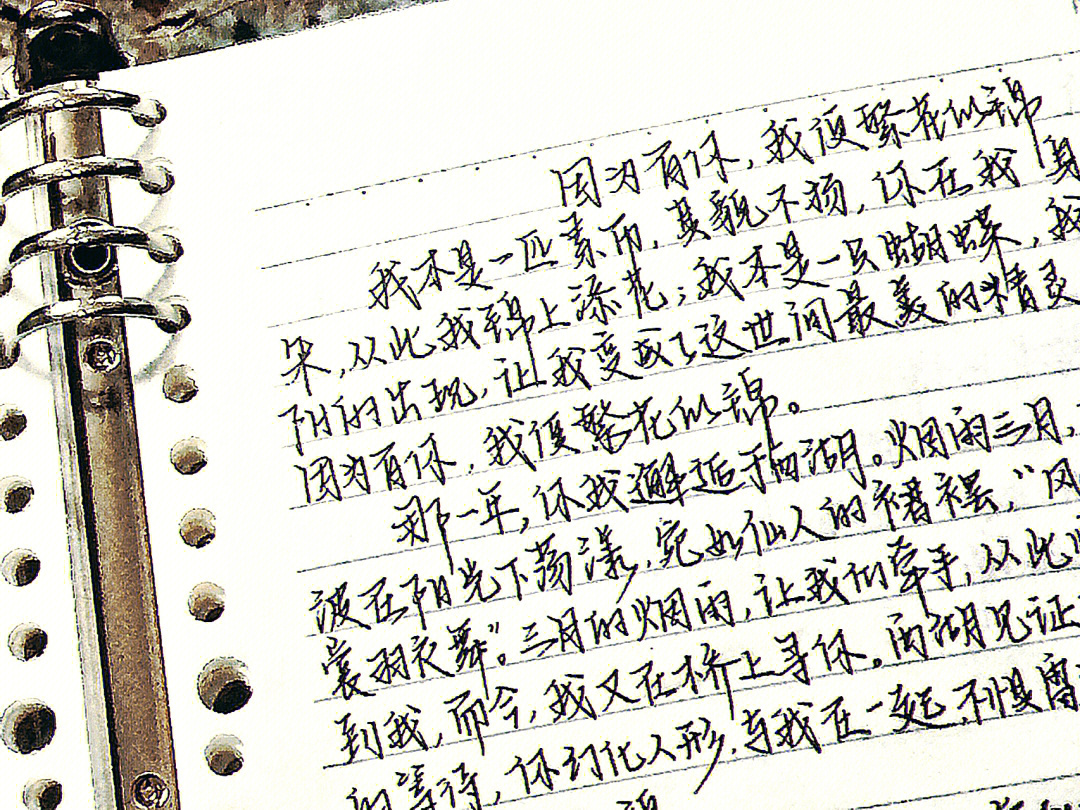 因为有你，我便繁花似锦
我本是一匹素布，其貌不扬，你在我身
朵，从此我锦上添花；我本是一只蝴蝶，我
阳的出现，让我变成了这世间最美的精灵
因为有你，我便繁花似锦。
那一年，你我邂逅于西湖。烟雨三月，
波在阳光下荡漾，宛如仙人的裙摆，“风
裳羽衣舞”。三月的烟雨，让我们牵手，从此
到我，而今，我又在桥上寻你。西湖见证
的等待，你幻化人形，与我在一起，不惧雷